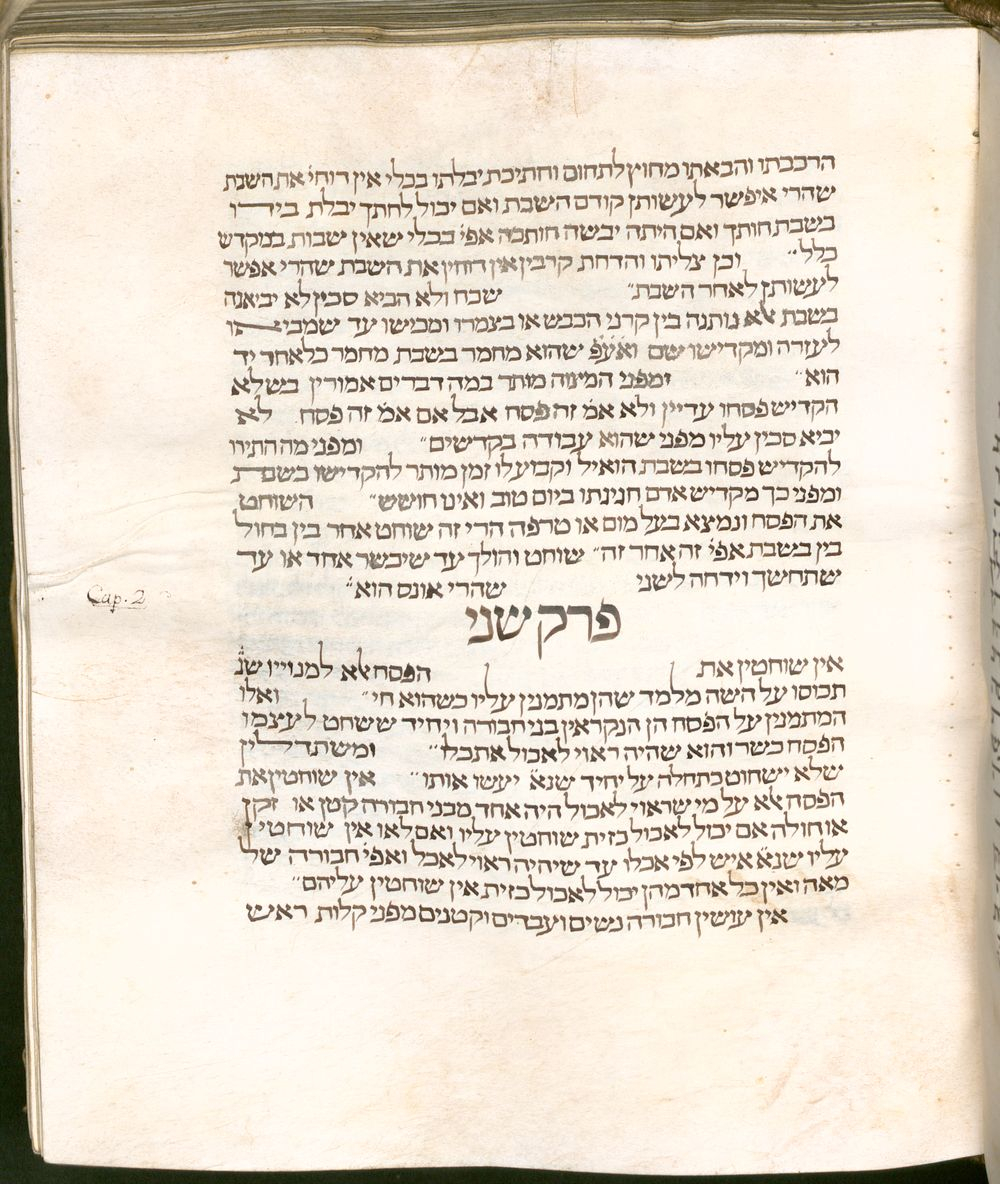 הרכבתו והבאתו מחוץ לתחום וחתיכת יבלתו בכלי אין דוחי׳ את השבת
שהרי איפשר לעשותן קודם השבת ואם יכול לחתך יבלת בידו
בשבת חותך ואם היתה יבשה חותכה אפי׳ בכלי שאין שבות במקדש
כלל״ וכן צליתו והדחת קרבין אין דוחין את השבת שהרי אפשר
לעשותן לאחר השבת״ שכח ולא הביא סכין לא יביאנה
בשבת ﭏא נותנה בין קרני הכבש או בצמרו ומכישו עד שמביאו
לעזרה ומקדישו שם ואע״פ שהוא מחמר בשבת מחמר כלאחר יד
הוא״ ומפני המצוה מותר במה דברים אמורין בשלא
הקדיש פסחו עדיין ולא אמ׳ זה פסח אבל אם אמ׳ זה פסח לא
יביא סכין עליו מפני שהוא עבודה בקדשים״ ומפני מה התירו
להקדיש פסחו בשבת הואיל וקבוע לו זמן מותר להקדישו בשבת
ומפני כך מקדיש אדם חגיגתו ביום טוב ואינו חושש״ השוחט
את הפסח ונמצא בעל מום או טרפה הרי זה שוחט אחר בין בחול
בין בשבת אפי׳ זה אחר זה״ שוחט והולך עד שיכשר אחד או עד
שתחשך וידחה לשני שהרי אונס הוא״
Cap. 2
פרק שני
אין שוחטין את הפסח ﭏא למנוייו שנ׳
תכוסו על השה מלמד שהן מתמנין עליו כשהוא חי״ ואלו
המתמנין על הפסח הן הנקראין בני חבורה ויחיד ששחט לעצמו
הפסח כשר והוא שהיה ראוי לאכול את כלו״ ומשתדלין
שלא ישחוט בתחלה על יחיד שנא׳ יעשו אותו״ אין שוחטין את
הפסח ﭏא על מי שראוי לאכול היה אחד מבני חבורה קטן או זקן
או חולה אם יכול לאכול כזית שוחטין עליו ואם לאו אין שוחטין
עליו שנא׳ איש לפי אכלו עד שיהיה ראוי לאכל ואפי׳ חבורה של
מאה ואין כל אחד מהן יכול לאכול כזית אין שוחטין עליהם״
אין עושין חבורה נשים ועבדים וקטנים מפני קלות ראש